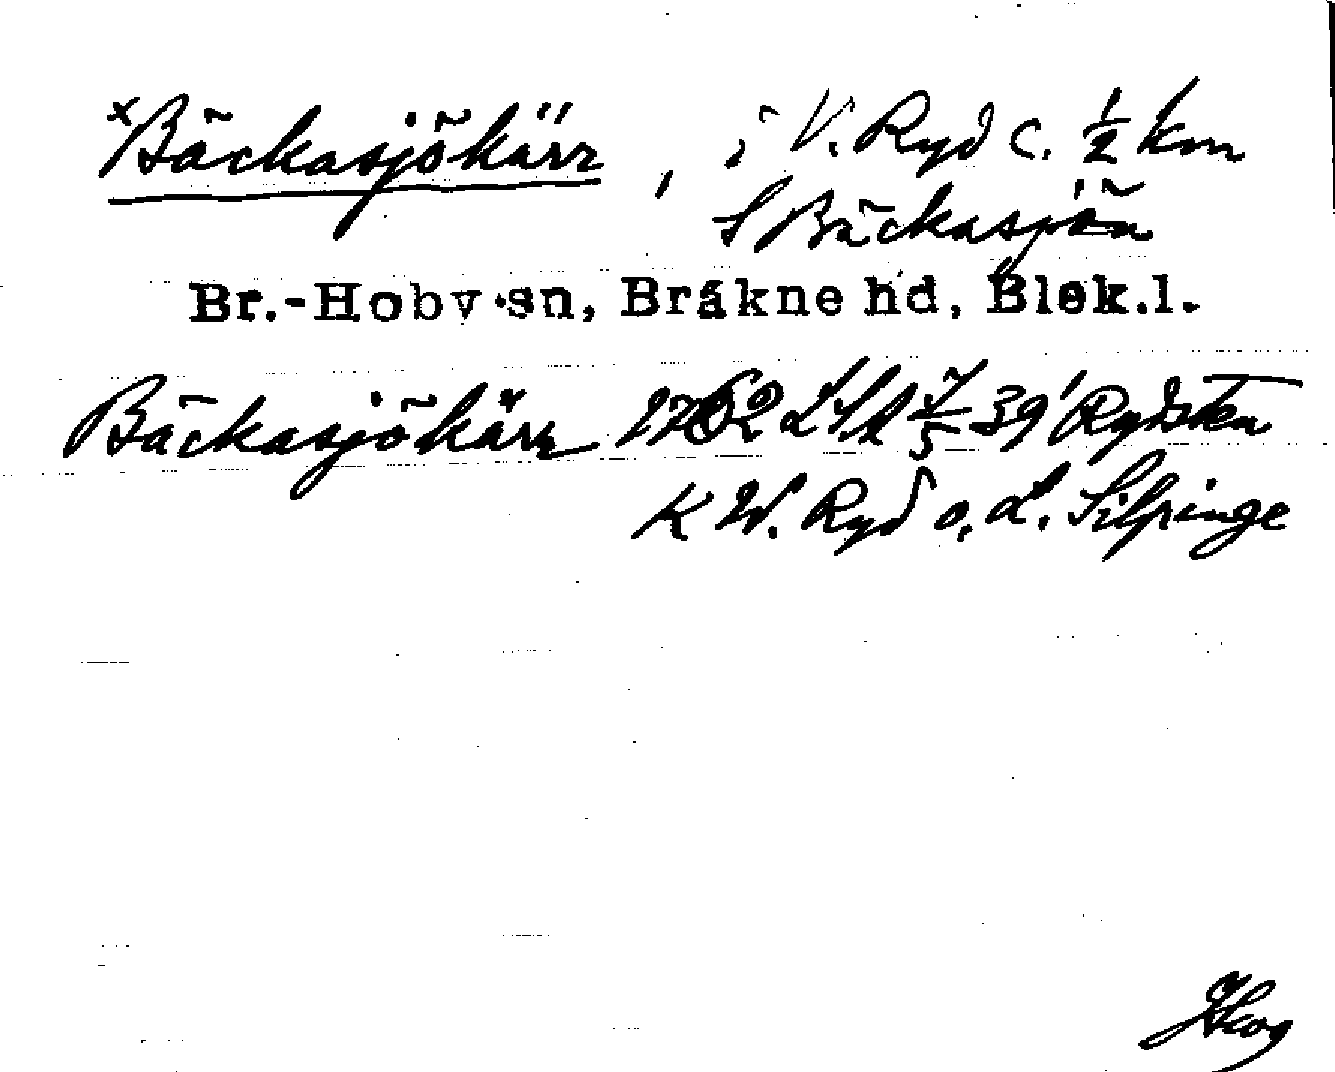 x Bäckasjökärr, i V. Ryd c. 1/2 km
S Bäckasjön
Br.-Hoby sn, Bräkne hd, Blek.l.
Bäckasjökärr 1762 LSA 7/5 39' Rydsten
K W. Ryd o. L. Silpinge